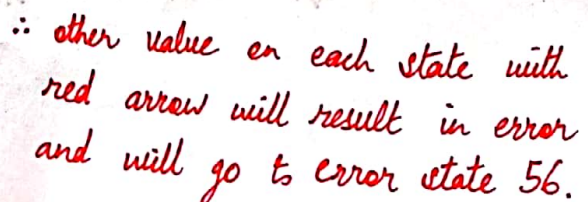 ∴ other value on each state with
red arrow will result in error
and will go to error state 56.